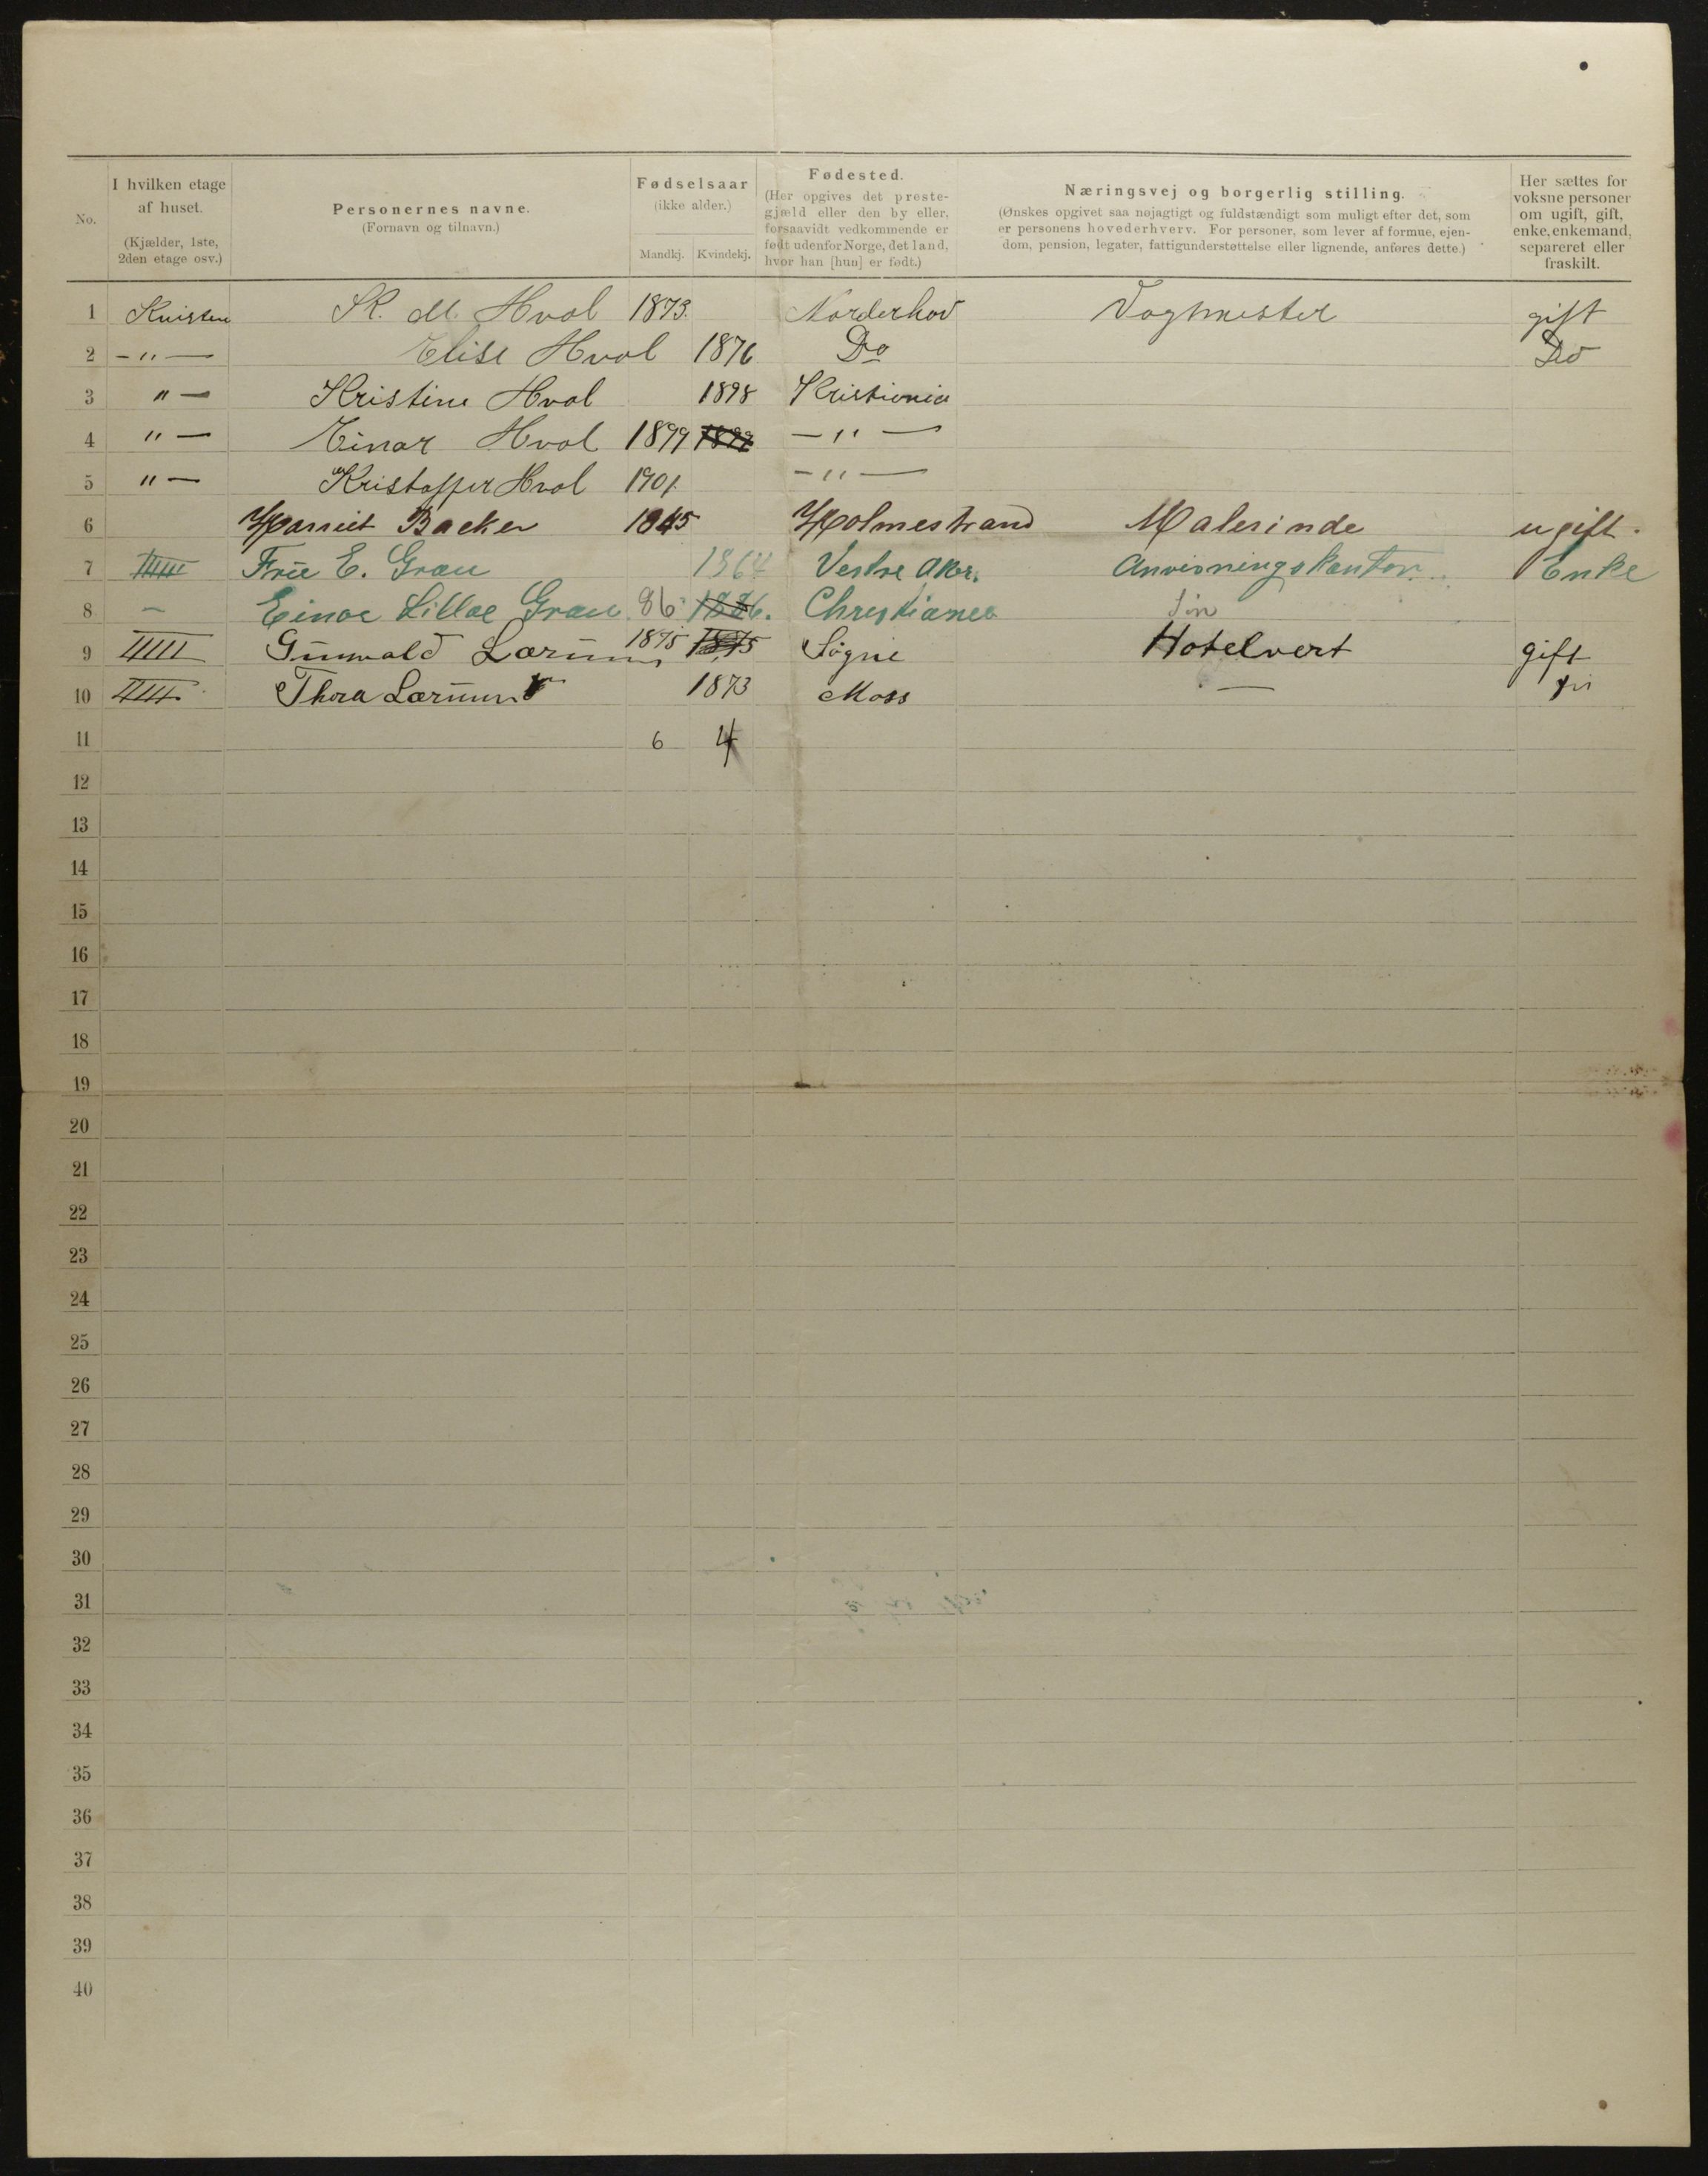 No.
I hvilken etage af huset.
(Kjælder, 1ste, 2den etage osv.)
Personernes navne.
(Fornavn og tilnavn.)
Fødselsaar
(ikke alder.)
Mandkj. Kvindekj.
Fødested.
(Her opgives det preste-
gjæld eller den by eller,
forsaavidt vedkommende er
født udenfor Norge, det land,
hvor han [hun] er født.)
Næringsvej og borgerlig stilling.
(Ønskes opgivet saa nøjagtigt og fuldstændigt som muligt efter det, som
er personens hovederhverv. For personer, som lever af formue, ejen-
dom, pension, legater, fattigunderstøttelse eller lignende, anføres dette.)
Her sættes for
voksne personer
om ugift, gift,
enke, enkemand,
separeret eller
fraskilt.
1 Kvisten K. M. Hval 1873. Norderhov Vogtmester gift
2 - " - Elise Hval 1876 Do Do
3 " - Kristine Hval 1898 Kristiania
4 " - Einar Hval 1899 1899 - " -
5 " - Kristoffer Hval 1901. - " -
6 Harriet Backer 1845 Holmestrand Malerinde ugift.
7 IIIII Frue E. Grau 1864 Vestre Aker. Anvisningskontor. Enke
8 - Einar Grau 86 1886. Christiania Søn
9 IIIII Gunvald 1875 1875 Søgne Hotelvert gift
10 IIII Thora 1873 Moss -
11 6 4
12
13
14
15
16
17
18
19
20
21
22
23
24
25
26
27
28
29
30
31
32
33
34
35
36
37
38
39
40